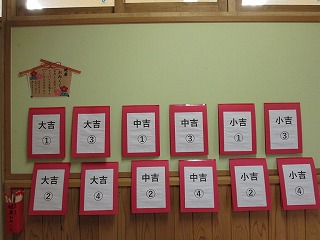 大吉
①
大吉
③
中吉
①
中吉
③
小吉
①
小吉
③
大吉
②
大吉
④
中吉
②
中吉
④
小吉
②
小吉
④